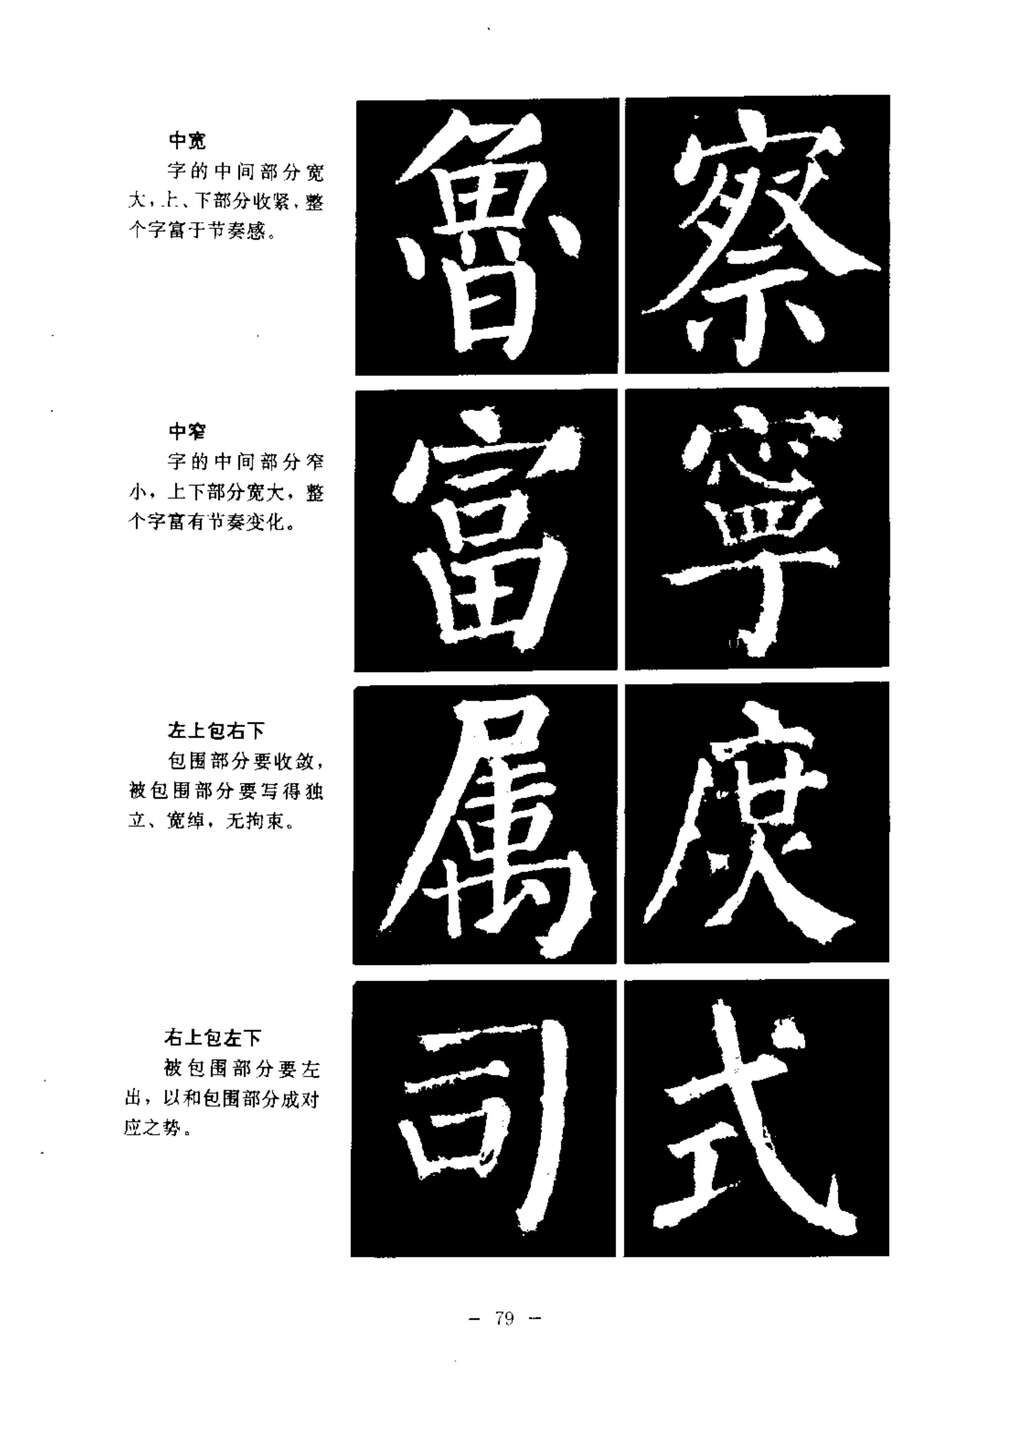 中宽
字的中间部分宽
大，上、下部分收紧，整
个字富于节奏感。
魯 察
中窄
字的中间部分窄
小，上下部分宽大，整
个字富有节奏变化。
富 寧
左上包右下
包围部分要收敛，
被包围部分要写得独
立、宽绰，无拘束。
属 庶
右上包左下
被包围部分要左
出，以和包围部分成对
应之势。
司 式
－ 79 －